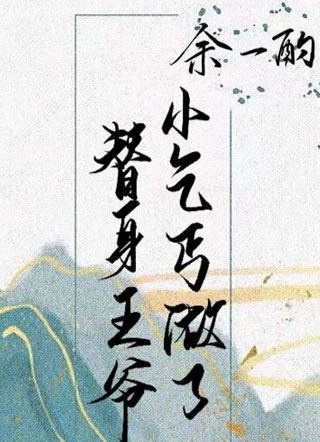 余一酌
小乞丐做了
替身王爷